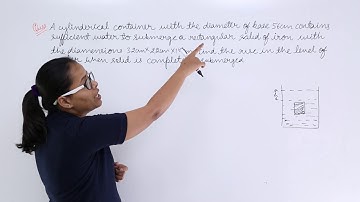 Que) A cylinderical container with the diameter of base 56cm contains
sufficient water to submerge a rectangular solid of iron with
the diamensions 32cm × 22cm × find the rise in the level of
when solid is completely submerged